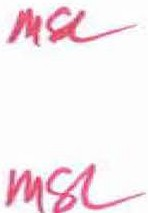 MSL
MSL